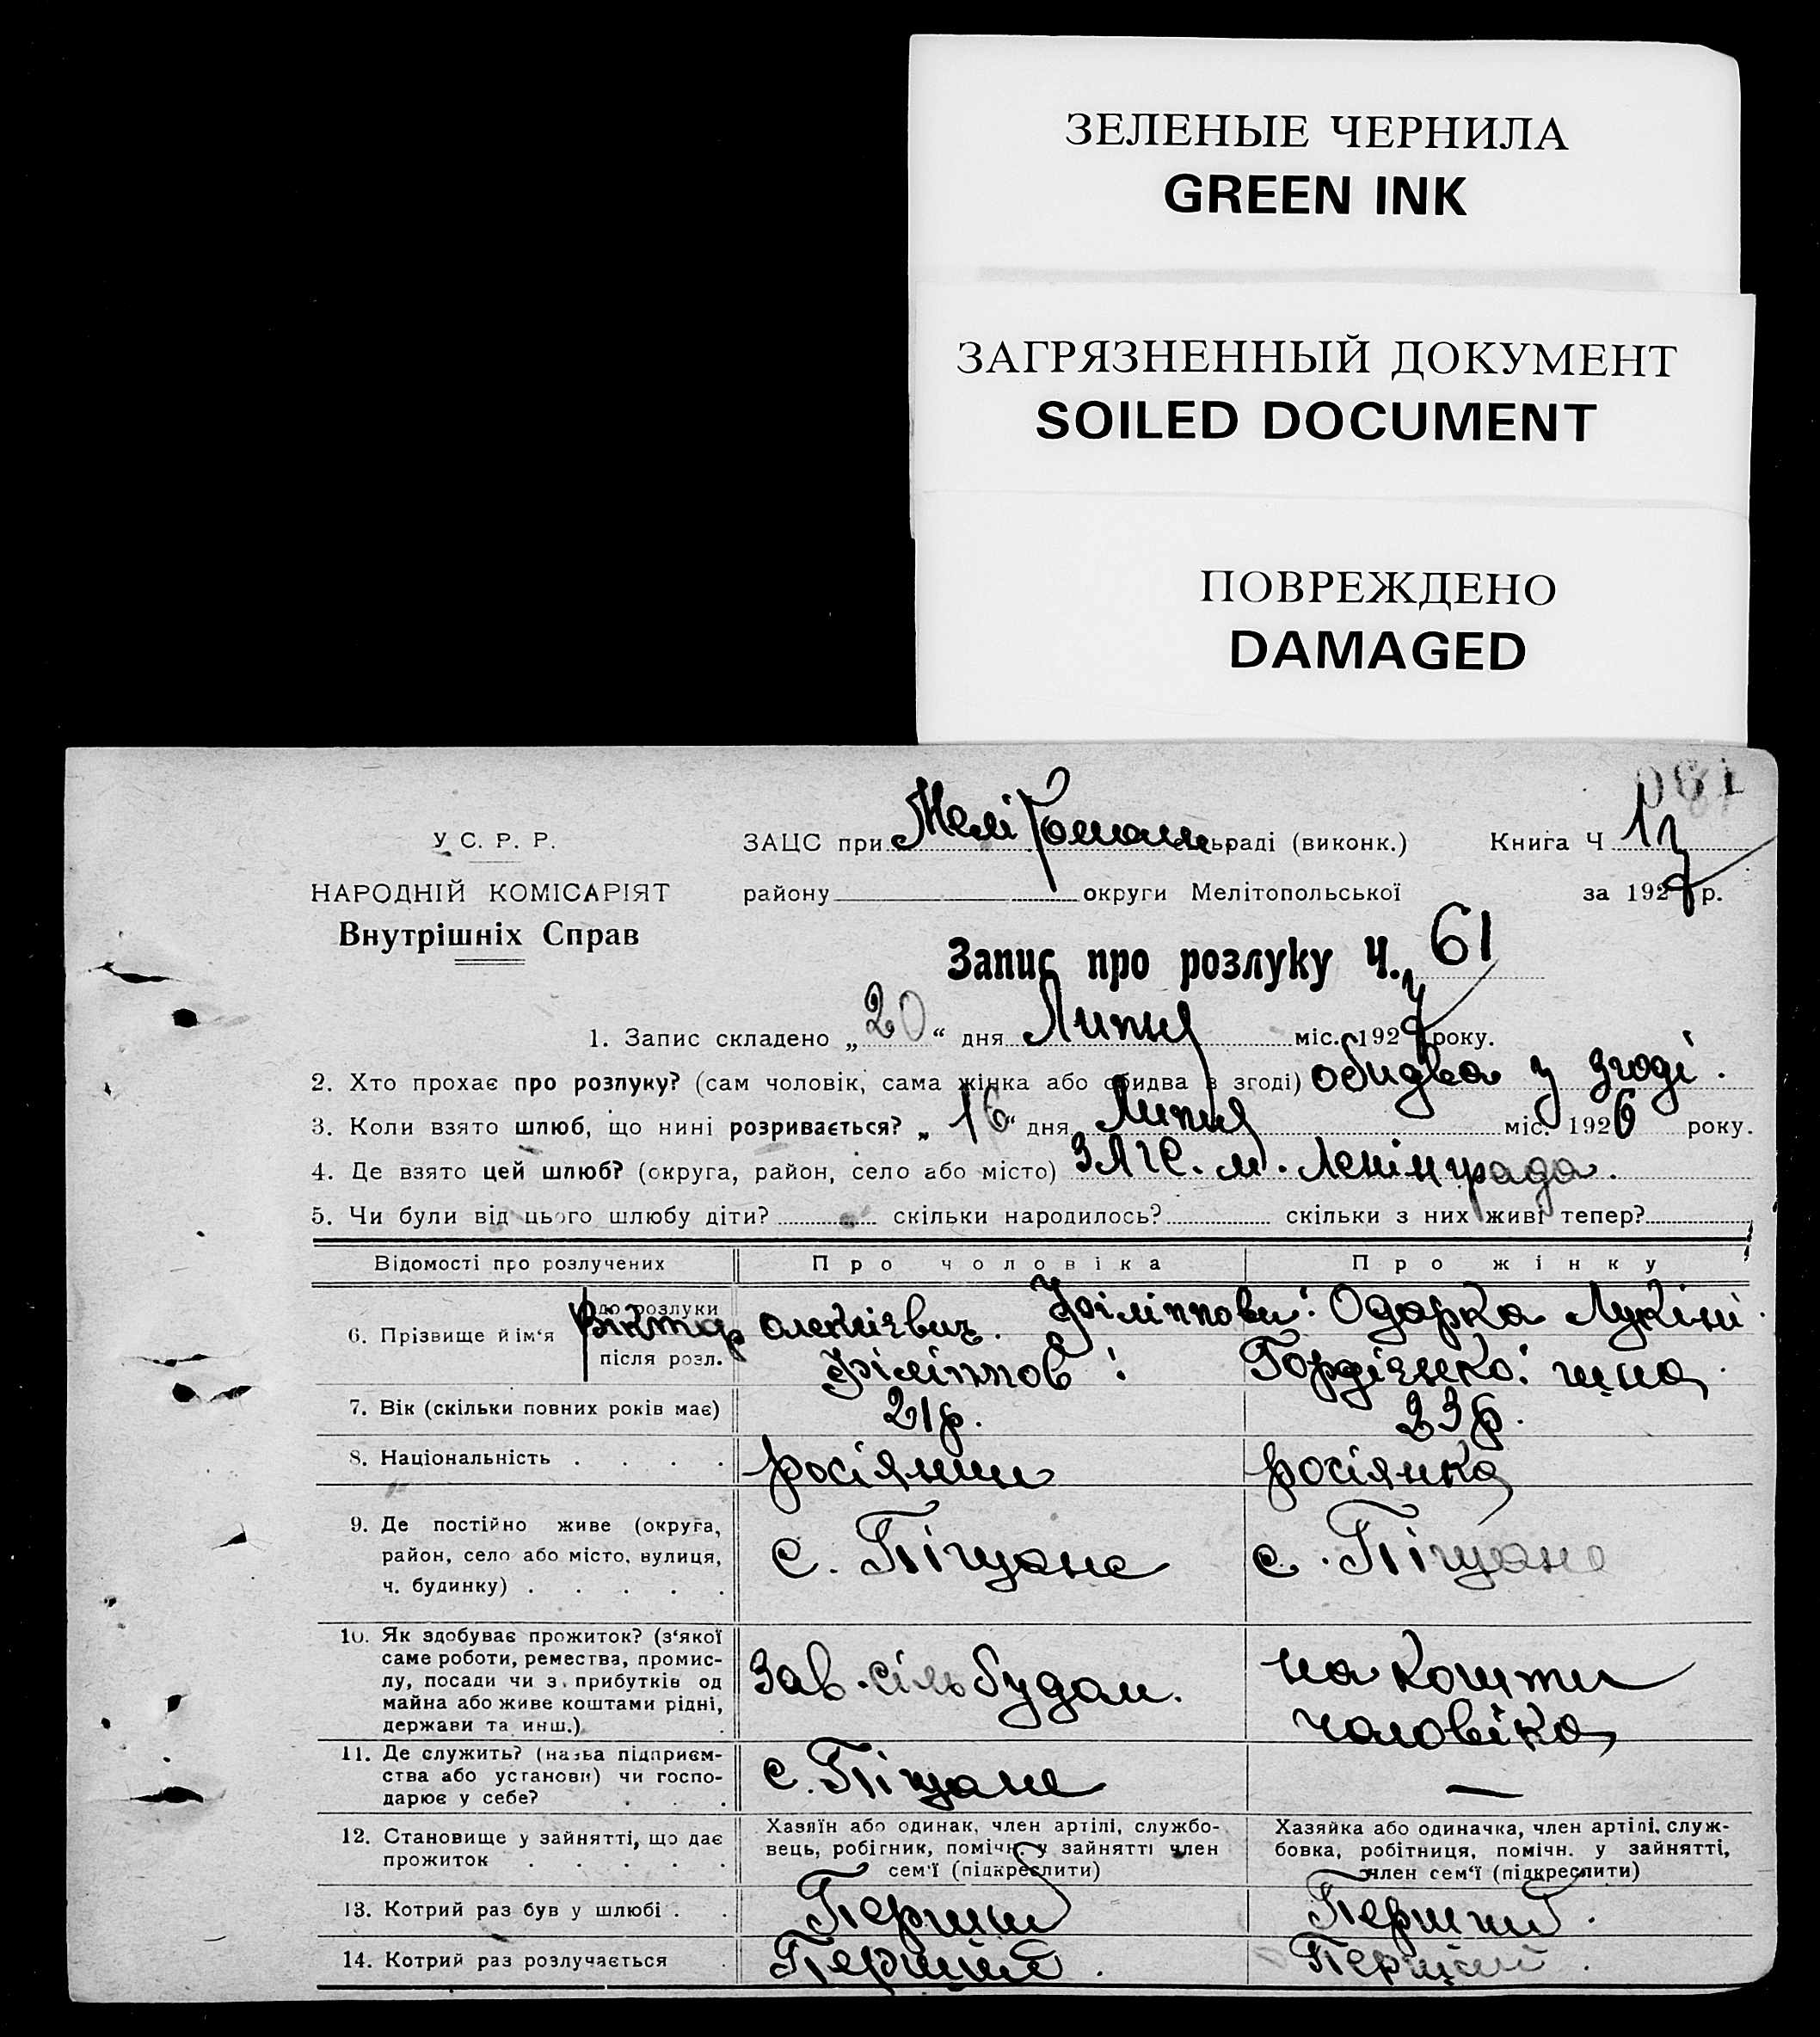 ЗЕЛЕНЫЕ ЧЕРНИЛА
GREEN INK
ЗАГРЯЗНЕННЫЙ ДОКУМЕНТ
SOILED DOCUMENT
ПОВРЕЖДЕНО
DAMAGED
У С. Р. Р.
НАРОДНІЙ КОМІСАРІЯТ
Внутрішніх Справ
ЗАЦС при Мелітопольраді (виконк.) Книга Ч
району округи Мелітопольської за 1927 р.
Запис про розлуку Ч. 61
1. Запис складено „20“ дня Липня міс. 1927 року.
2. Хто прохає про розлуку? (сам чоловік, сама жінка або обидва в згоді) обидва у згоді.
3. Коли взято шлюб, що нині розривається? „16“ дня Липня міс. 1926 року.
4. Де взято цей шлюб? (округа, район, село або місто) ЗАГС. м. Ленінграда.
5. Чи були від цього шлюбу діти? скільки народилось? скільки з них живі тепер?
Відомості про розлучених Про чоловіка Про жінку
6. Прізвище й ім‘я до розлуки
після розл.
Віктор Філіппов Одарка
Філіппов Гордієнко
7. Вік (скільки повних років має) 21р. 23р.
8. Національність росіянин росіянка
9. Де постійно живе (округа, район, село або місто, вулиця, ч. будинку) с. Піщане с. Піщане
10. Як здобуває прожиток? (з‘якої саме роботи, ремества, промислу, посади чи з прибутків од майна або живе коштами рідні, держави та инш.) Зав. сільбудом. на кошти чоловіка
11. Де служить? (назва підприємства або установи) чи господарює у себе? с. Піщане —
12. Становище у зайнятті, що дає прожиток
Хазяїн або одинак, член артілі, службовець, робітник, помічн. у зайнятті член сем‘ї (підкреслити)
Хазяйка або одиначка, член артілі, службовка, робітниця, помічн. у зайнятті, член сем‘ї (підкреслити)
13. Котрий раз був у шлюбі Перший Перший
14. Котрий раз розлучається Перший Перший